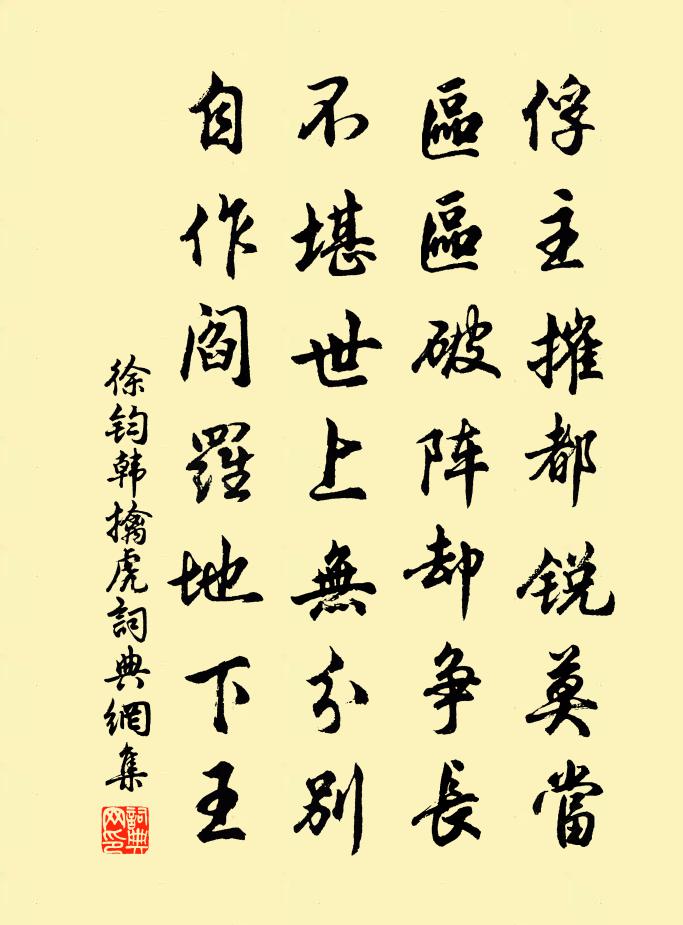 俘主摧都锐莫當
區區破阵却争長
不堪世上無分別
自作阎羅地下王
徐钧韩擒虎詞典網集
詞典网印